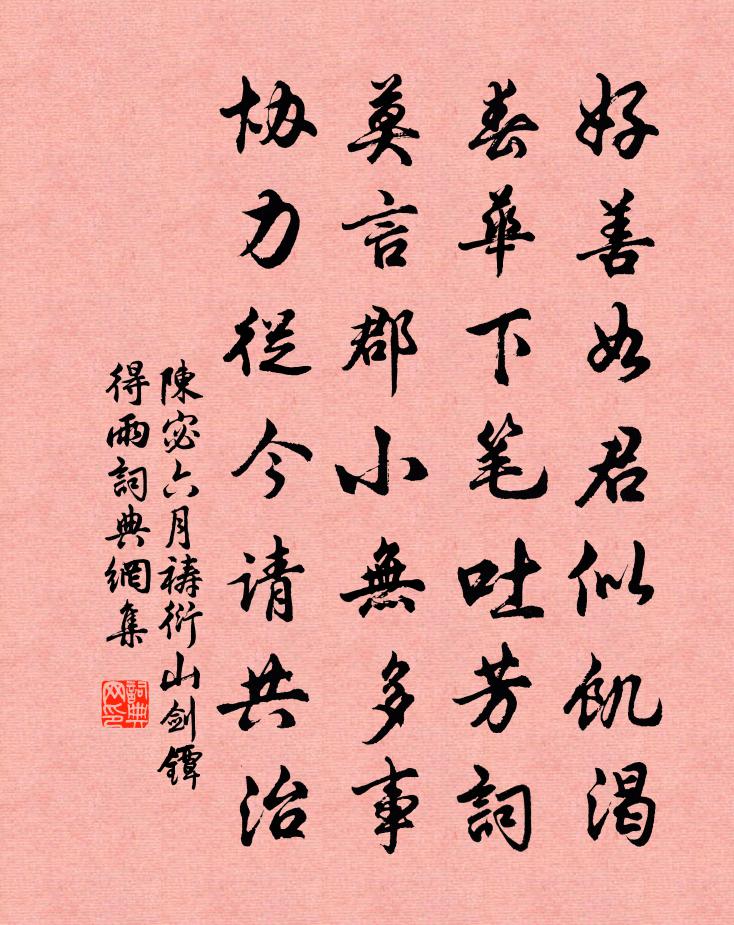 好善如君似飢渴
春華下笔吐芳詞
莫言郡小無多事
协力從今请共治
陳宓六月祷衍山剑鐔
得雨詞典網集
詞典网印